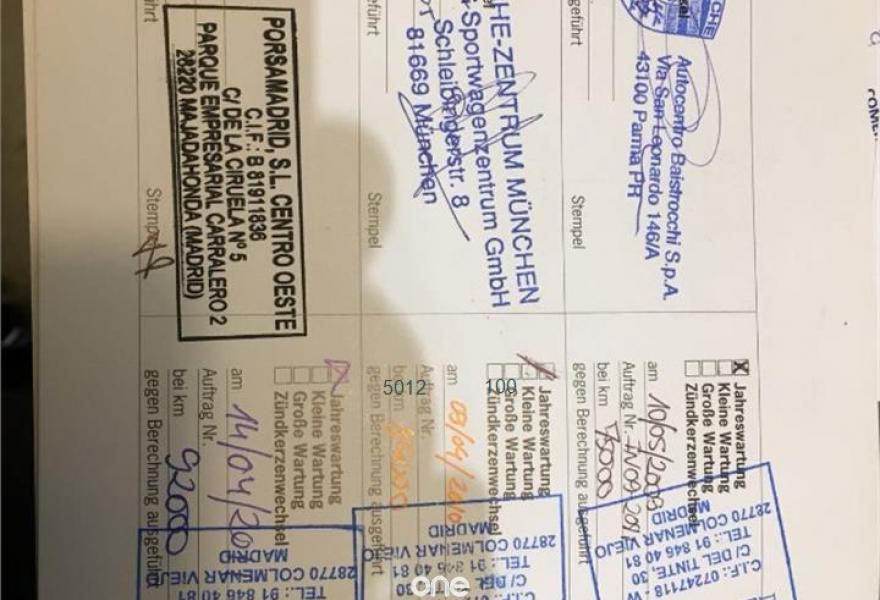 CHE
Autocentro Baistrocchi S.p.A.
Via San Leonardo 146/A
43100 Parma PR
Stempel
X Jahreswartung
Kleine Wartung
Große Wartung
Zündkerzenwechsel
am 10/05/2009
Auftrag Nr.
bei km 75000
gegen Berechnung ausgeführt
28770 COLMENAR VIEJO
MADRID
TEL.: 91 846 40 81
C/ DEL TINTE, 30
C.I.F.: 07247118 - W
HE-ZENTRUM MÜNCHEN
Sportwagenzentrum GmbH
Schleibingerstr. 8
81669 München
Stempel
Jahreswartung
Kleine Wartung
Große Wartung
Zündkerzenwechsel
am 09/04/2010
Auftrag Nr.
bei km
gegen Berechnung ausgeführt
28770 COLMENAR VIEJO
MADRID
TEL.: 91 846 40 81
C/ DEL
30
PORSAMADRID, S.L. CENTRO OESTE
C.I.F.: B 81911836
C/ DE LA CIRUELA Nº 5
PARQUE EMPRESARIAL CARRALERO 2
28220 MAJADAHONDA (MADRID)
Stempel
Jahreswartung
Kleine Wartung
Große Wartung
Zündkerzenwechsel
am 14/04/20
Auftrag Nr.
bei km 92000
gegen Berechnung ausgeführt
28770 COLMENAR VIEJO
MADRID
TEL.: 91 846 40 81
5012
109
one